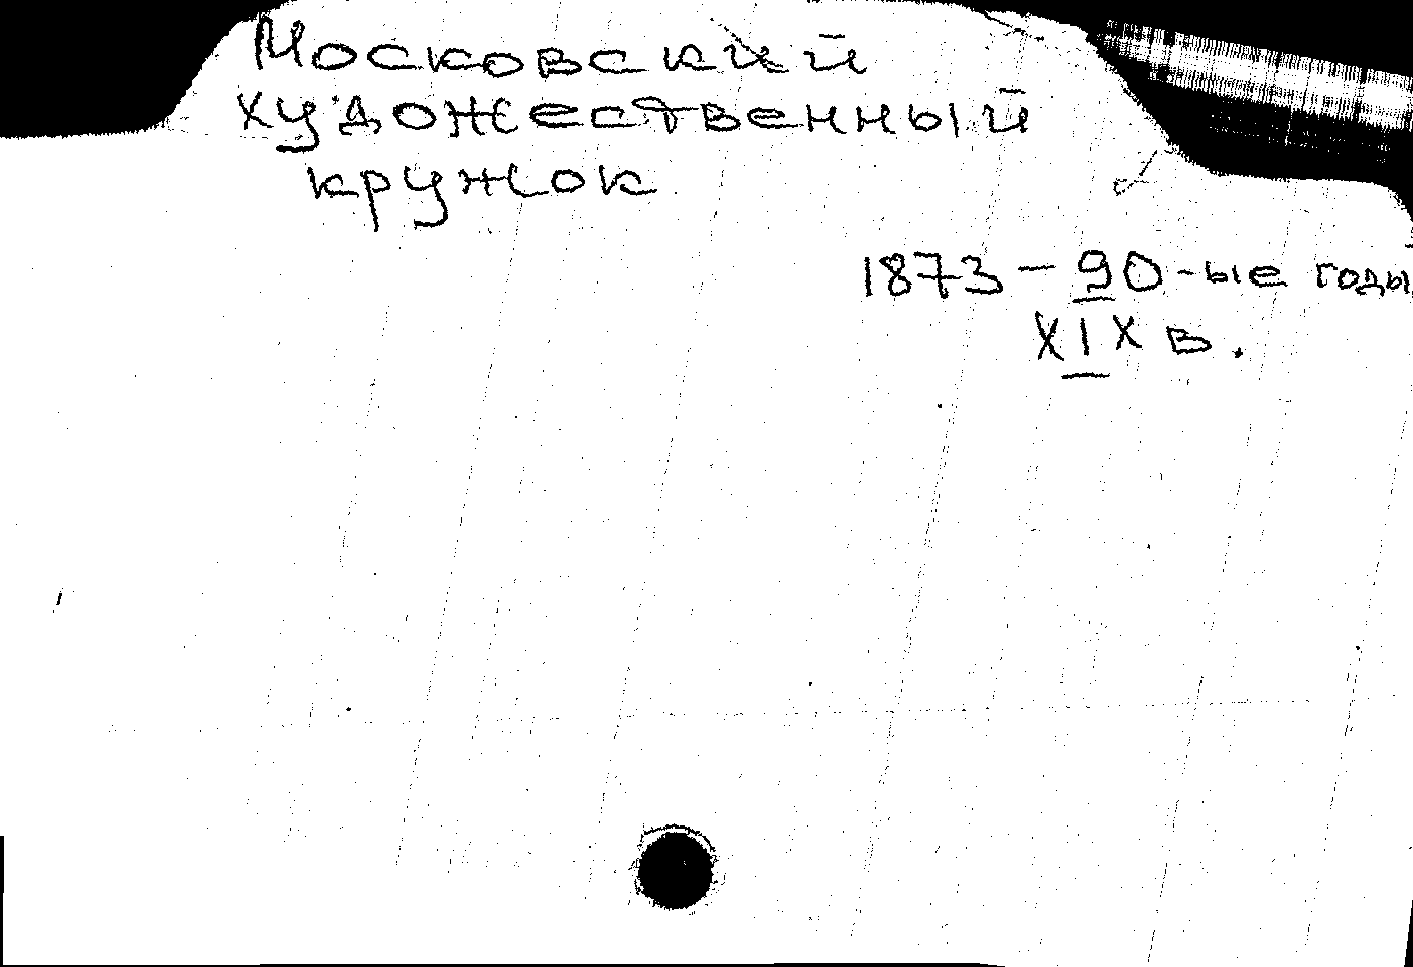 Московский
художественный
кружок
1873 - 90-ые годы
XIX в.